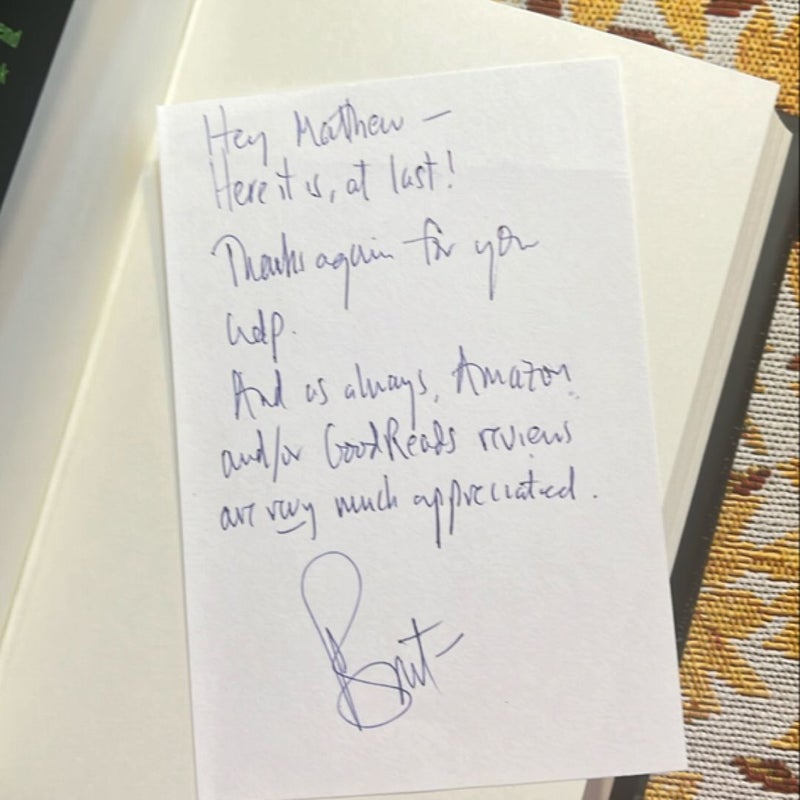 Hey Matthew —
Here it is, at last!
Thanks again for your
help.
And as always, Amazon
and/or GoodReads reviews
are very much appreciated.